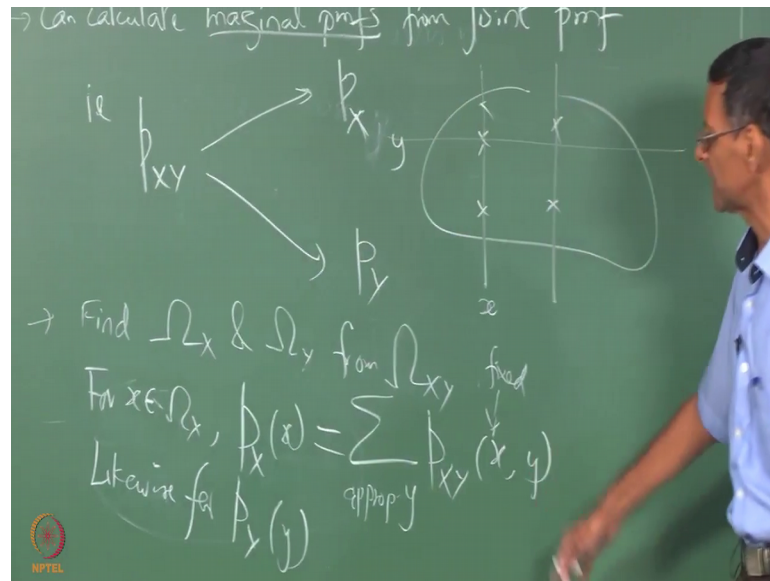 → Can calculate marginal pmfs from joint pmf
ie p_XY
p_X
y
p_Y
x
→ Find Ω_X & Ω_Y from Ω_XY
fixed
For x∈Ω_X, p_X(x) = Σ p_XY(x, y)
approp y
Likewise for p_Y(y)
NPTEL